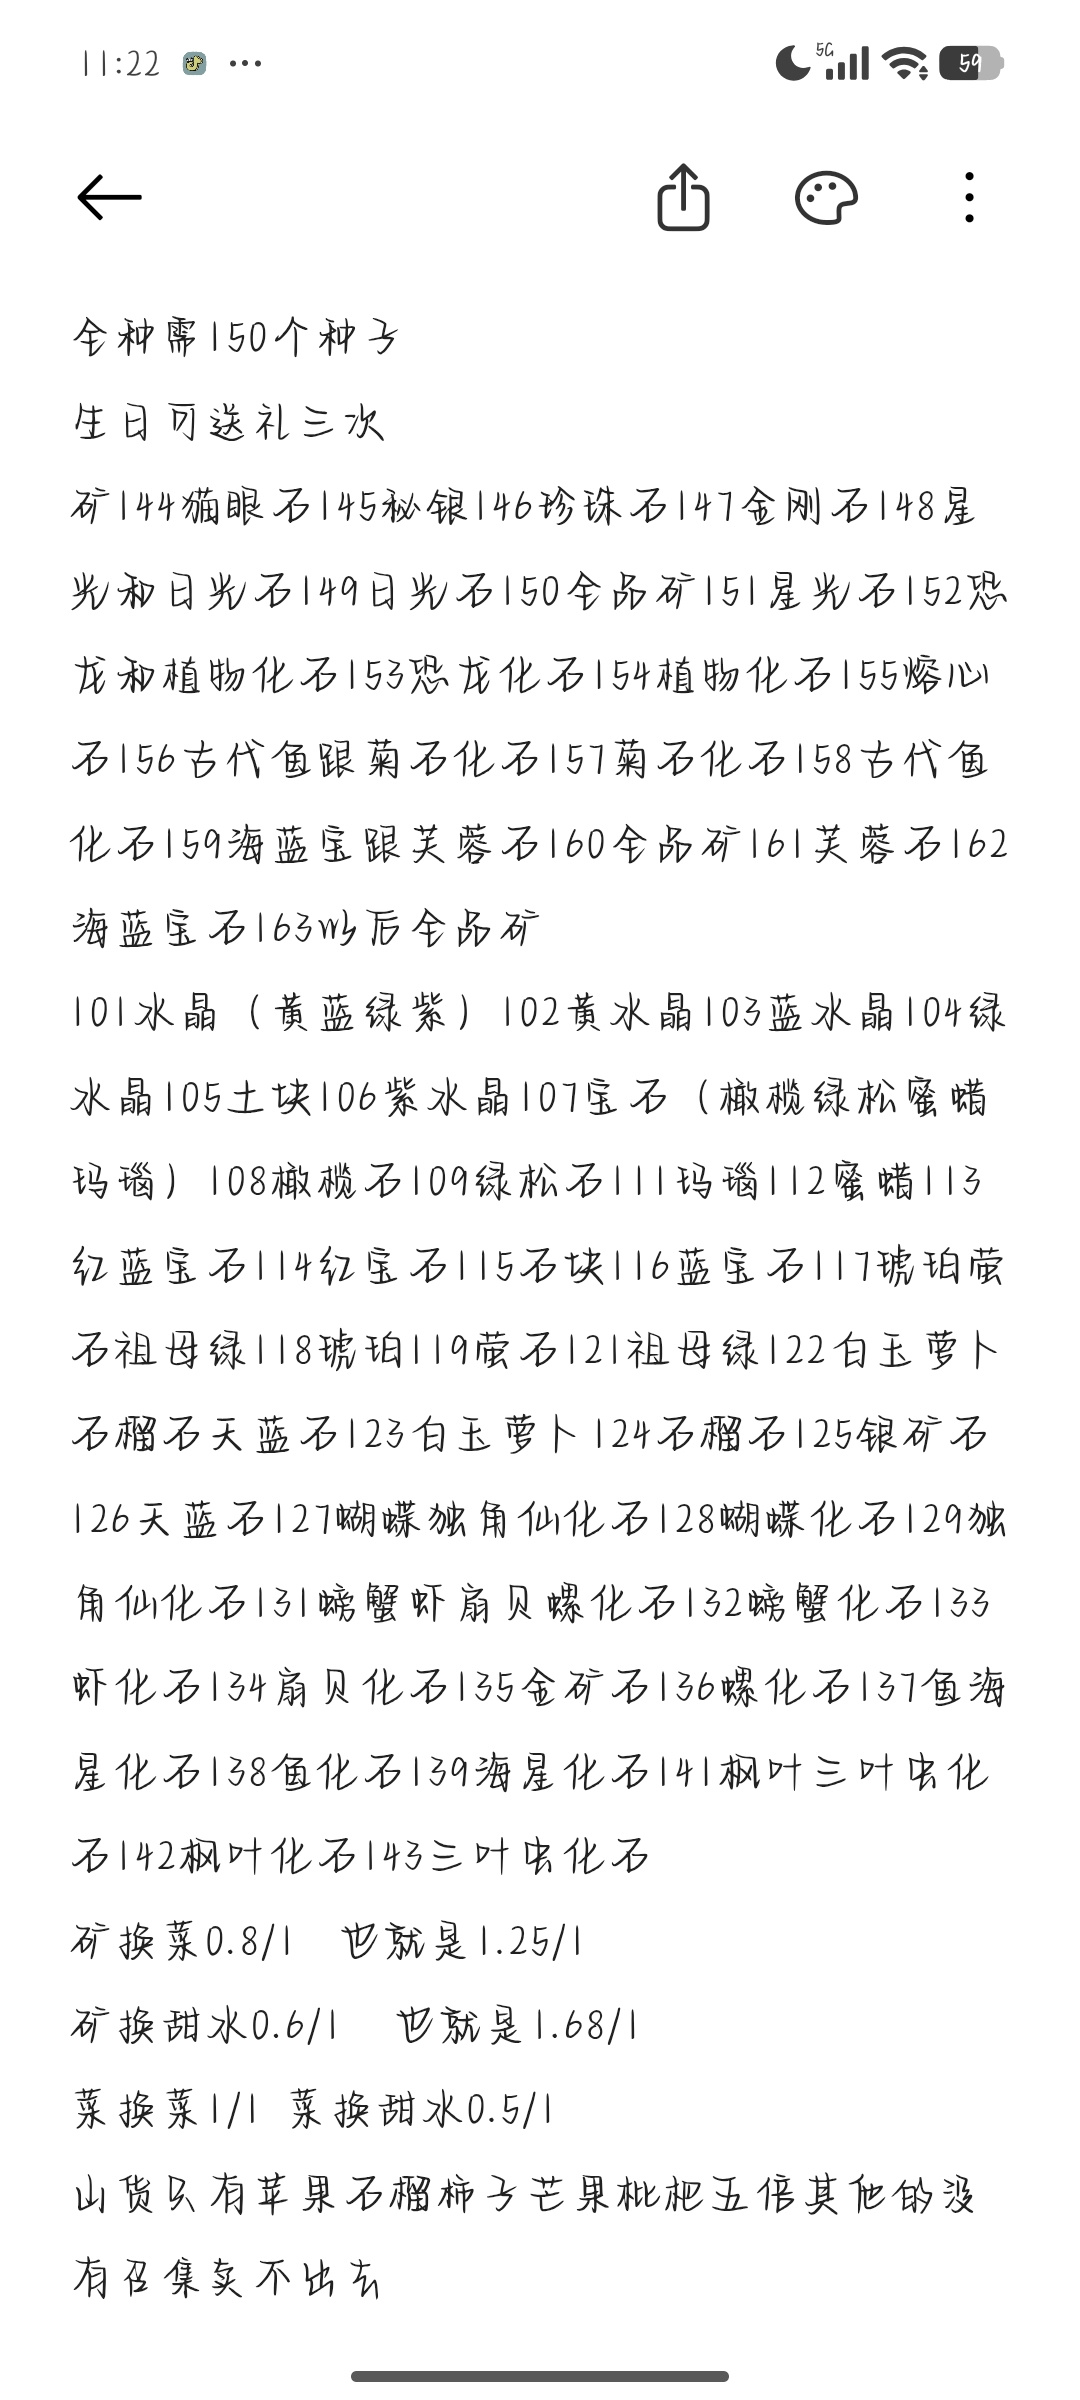 11:22
5G
59
全种需150个种子
生日可送礼三次
矿144猫眼石145秘银146珍珠石147金刚石148星
光和日光石149日光石150全品矿151星光石152恐
龙和植物化石153恐龙化石154植物化石155熔心
石156古代鱼跟菊石化石157菊石化石158古代鱼
化石159海蓝宝跟芙蓉石160全品矿161芙蓉石162
海蓝宝石163以后全品矿
101水晶（黄蓝绿紫）102黄水晶103蓝水晶104绿
水晶105土块106紫水晶107宝石（橄榄绿松蜜蜡
玛瑙）108橄榄石109绿松石111玛瑙112蜜蜡113
红蓝宝石114红宝石115石块116蓝宝石117琥珀萤
石祖母绿118琥珀119萤石121祖母绿122白玉萝卜
石榴石天蓝石123白玉萝卜124石榴石125银矿石
126天蓝石127蝴蝶独角仙化石128蝴蝶化石129独
角仙化石131螃蟹虾扇贝螺化石132螃蟹化石133
虾化石134扇贝化石135金矿石136螺化石137鱼海
星化石138鱼化石139海星化石141枫叶三叶虫化
石142枫叶化石143三叶虫化石
矿换菜0.8/1 也就是1.25/1
矿换甜水0.6/1 也就是1.68/1
菜换菜1/1 菜换甜水0.5/1
山货只有苹果石榴柿子芒果枇杷五倍其他的没
有召集卖不出去